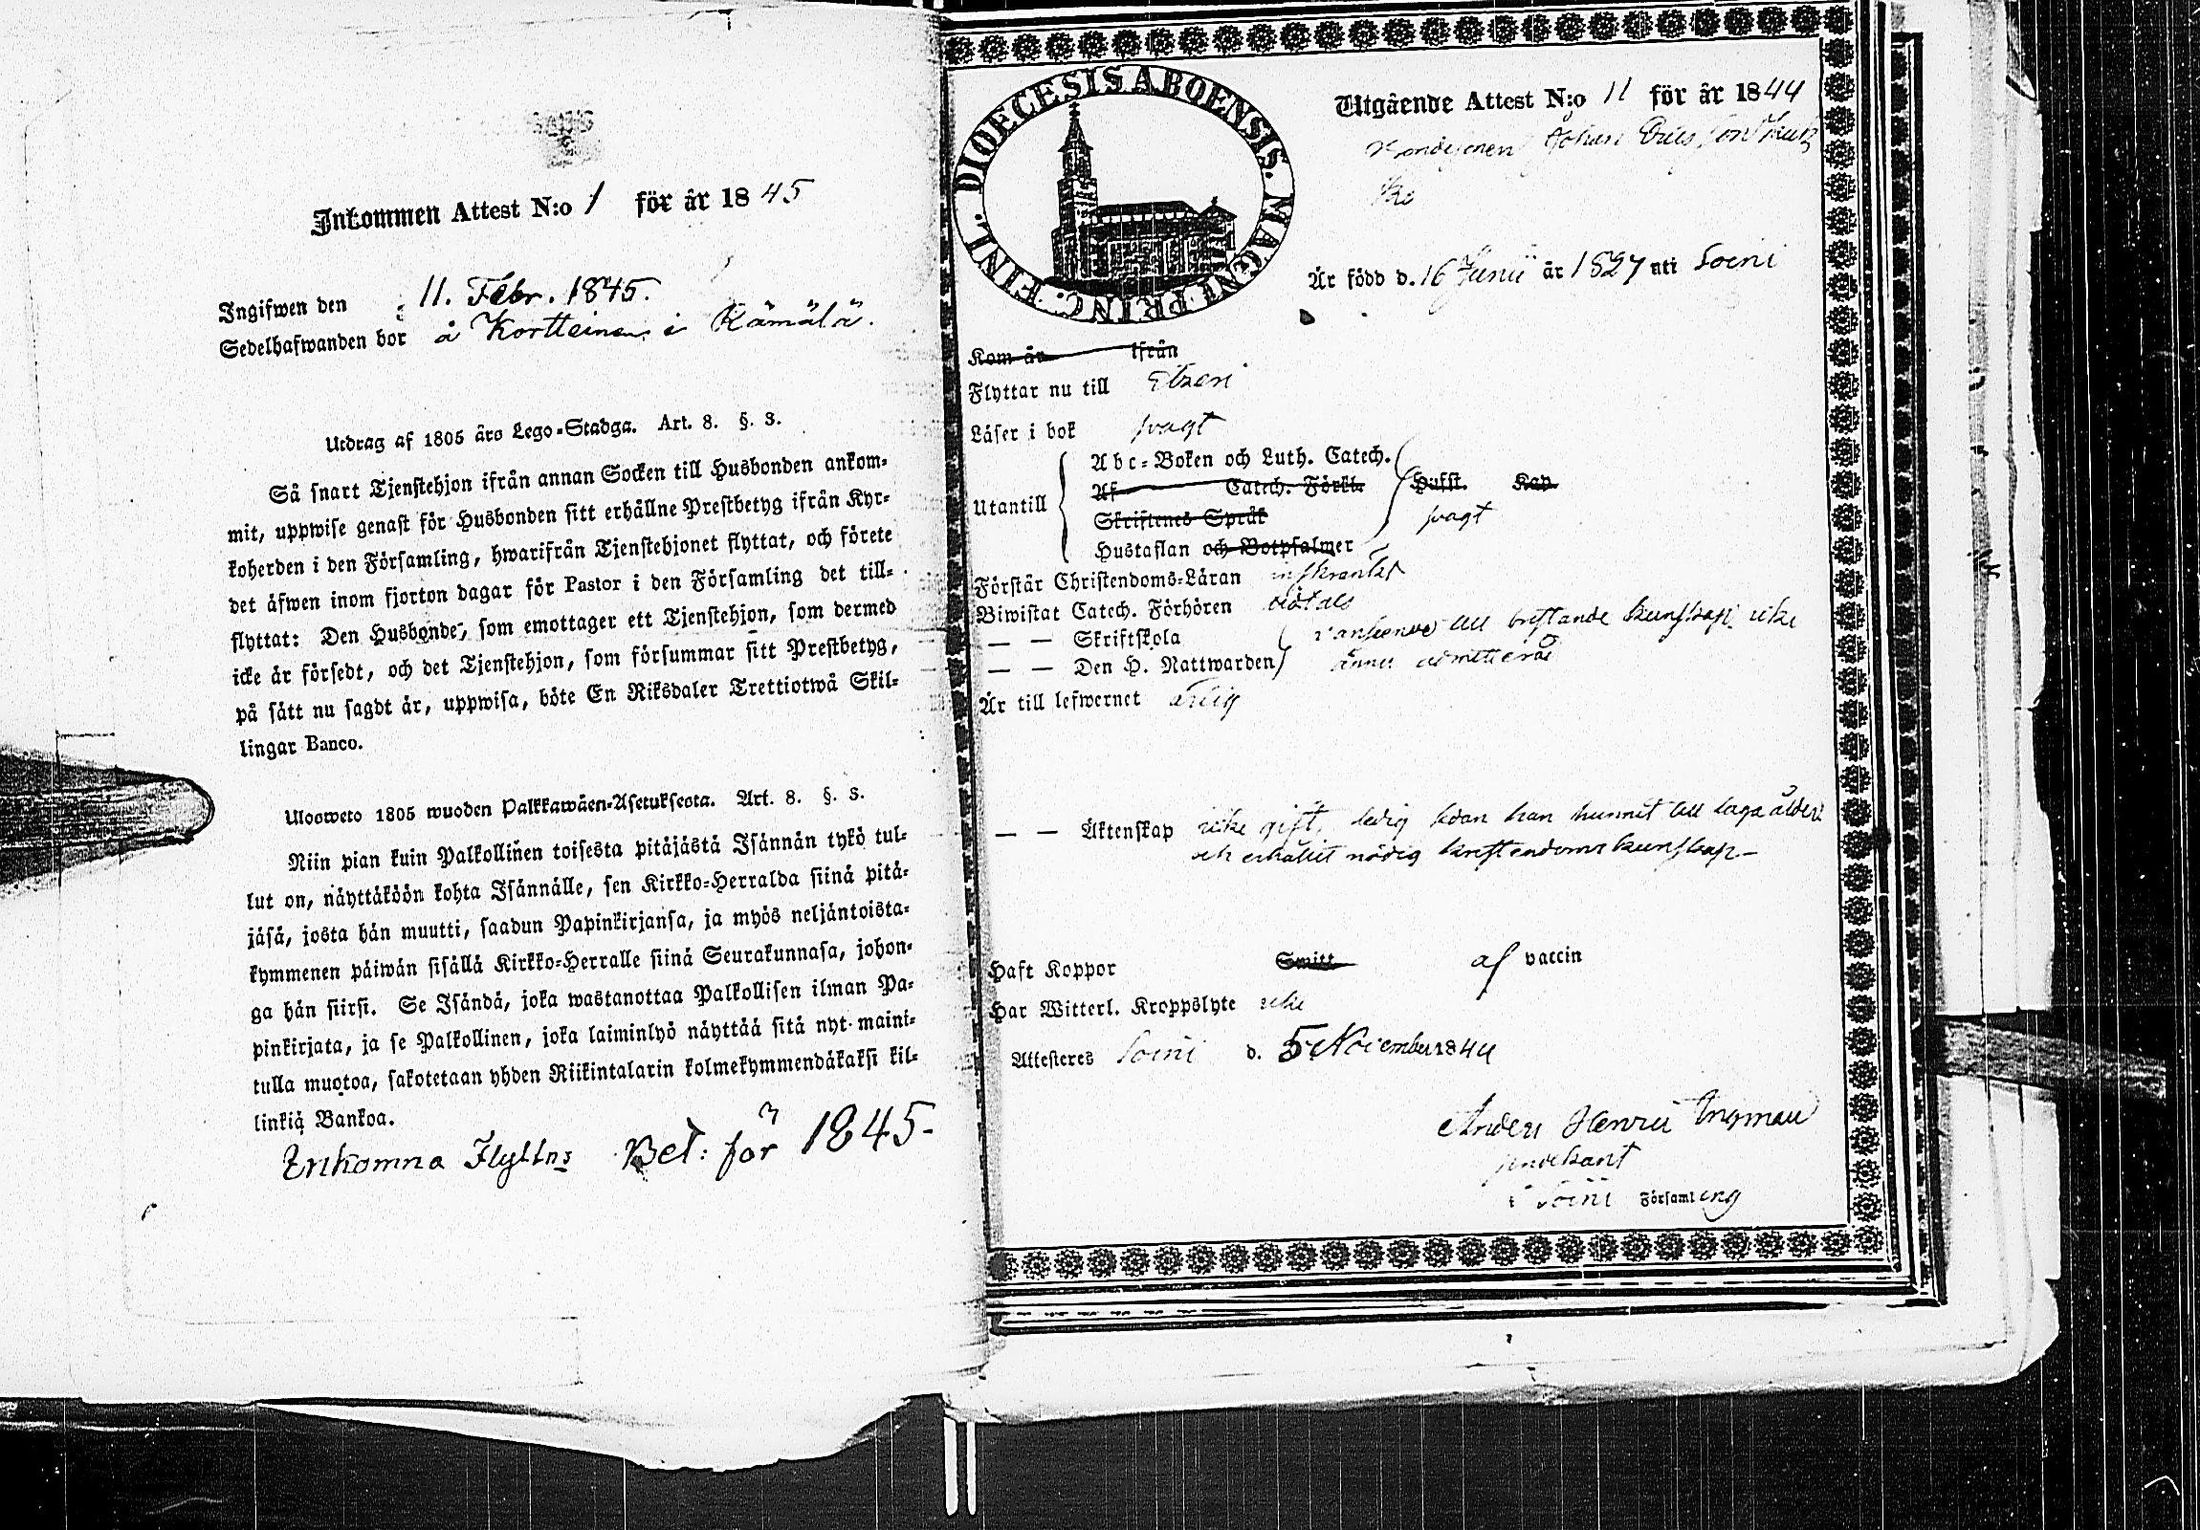 Inkommen Attest N:o 1 för år 1845
Ingifwen den 11. Febr. 1845.
Sedelhafwanden bor å Kortteinen i Kämälä.
Utdrag af 1805 års Lego-Stadga. Art. 8. §. 3.
Så snart Tjenstehjon ifrån annan Socken till Husbonden ankom-
mit, uppwise genast för Husbonden sitt erhållne Prestbetyg ifrån Kyr-
koherden i den Församling, hwarifrån Tjenstehjonet flyttat, och förete
det äfwen inom fjorton dagar för Pastor i den Församling det till-
flyttat: Den Husbonde, som emottager ett Tjenstehjon, som dermed
icke är försedt, och det Tjenstehjon, som försummar sitt Prestbetyg,
på sätt nu sagdt är, uppwisa, böte En Riksdaler Trettiotwå Skil-
lingar Banco.
Uloosweto 1805 wuoden Palkkawäen-Asetuksesta. Art. 8. §. 3.
Niin pian kuin Palkollinen toisesta pitäjästä Isännän tykö tul-
lut on, näyttäköön kohta Isännälle, sen Kirkko-Herralda siinä pitä-
jäsä, josta hän muutti, saadun Papinkirjansa, ja myös neljäntoista-
kymmenen päiwän sisällä Kirkko-Herralle siinä Seurakunnasa, johon-
ga hän siirsi. Se Isändä, joka wastanottaa Palkollisen ilman Pa-
pinkirjata, ja se Palkollinen, joka laiminlyö näyttää sitä nyt maini-
tulla muotoa, sakotetaan yhden Riikintalarin kolmekymmendäkaksi kil-
linkiä Bankoa.
Inkomna Flyttns Bet: för 1845.
DIOECESIS ABOENSIS. MAGNI PRINC. FINL.
Utgående Attest N:o 11 för år 1844
Johan
Är född d. 16 Junii år 1827 uti Soini
Kom år ifrån
Flyttar nu till Etseri
Läser i bok svagt
Abc-Boken och Luth. Catech.
Af Catech. Förkl. Husst. Kap.
Utantill
Skriftenes Språk svagt
Hustaflan och Botpsalmer
Förstår Christendoms-Läran inskränkt
Biwistat Catech. Förhören
— — Skriftskola till bristande kunskap icke
— — Den H. Nattwarden ännu admitterad
Är till lefwernet ärlig
— — Äktenskap icke gift, ledig sedan han hunnit till laga ålder
och erhållit nödig kristendoms kunskap—
Haft Koppor Smitt. af vaccin
Har Witterl. Kroppslyte icke
Attesteras Soini d. 5 November 1844
Anders Henric Ingman
predikant
i Soini Församling